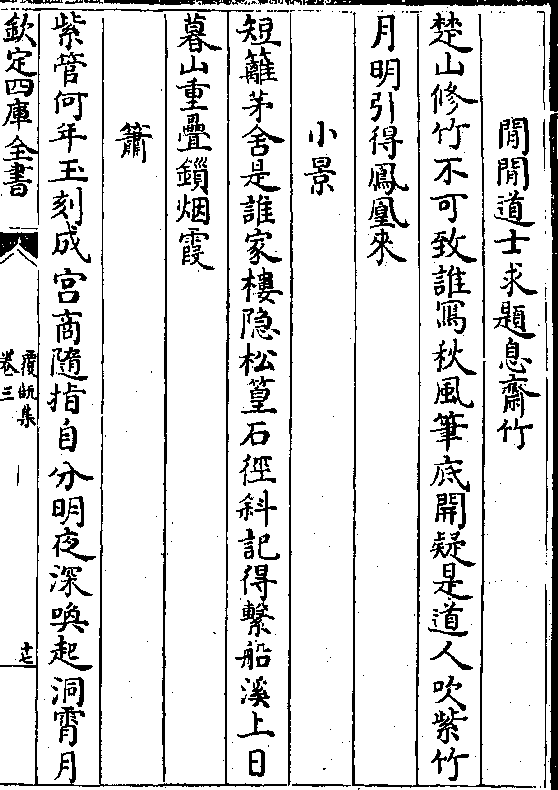 閒閒道士求題息齋竹
楚山修竹不可致誰寫秋風筆底開疑是道人吹紫竹
月明引得鳳凰來
小景
短籬茅舍是誰家樓隐松篁石徑斜記得繫船溪上日
暮山重疊鎖烟霞
簫
紫管何年玉刻成宫商隨指自分明夜深喚起洞霄月
欽定四庫全書
覆瓿集
卷三
十七